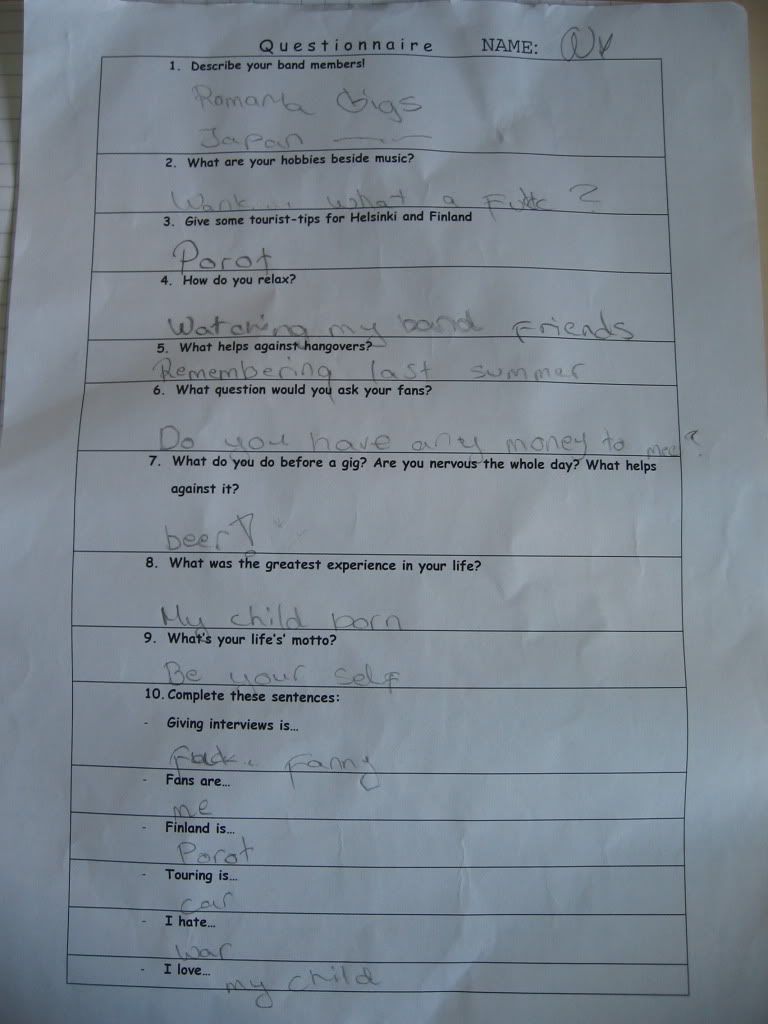 Questionnaire NAME:
1. Describe your band members!
Romania Gigs
Japan
2. What are your hobbies beside music?
Wank... what a
3. Give some tourist-tips for Helsinki and Finland
Porot
4. How do you relax?
Watching my band friends
5. What helps against hangovers?
Remembering last summer
6. What question would you ask your fans?
Do you have any money to mee?
7. What do you do before a gig? Are you nervous the whole day? What helps
against it?
beer!
8. What was the greatest experience in your life?
My child born
9. What's your life's' motto?
Be your self
10. Complete these sentences:
- Giving interviews is...
Fuck.. Fanny
- Fans are...
me
- Finland is...
Porot
- Touring is...
car
- I hate...
war
- I love...
my child